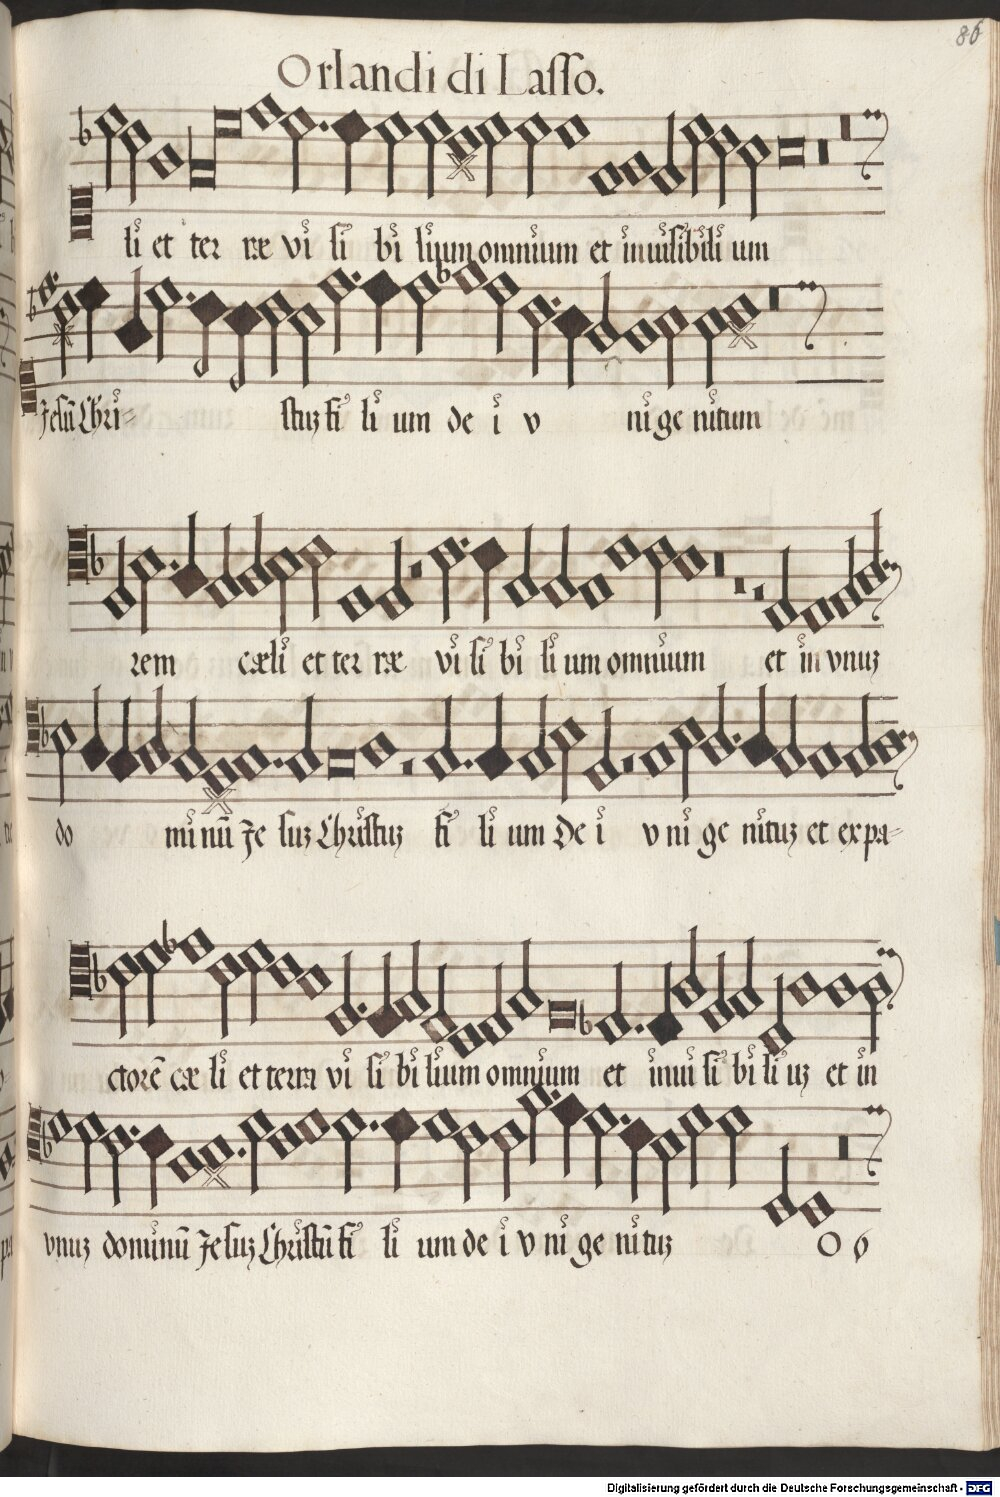 86
Orlandi di Lasso.
li et ter ræ vi si bi lium omnium et inuisibili um
Jesū Chri- stuz fi li um de i v ni ge nitum
rem cæli et ter ræ vi si bi li um omnium et in vnuz
do mi nū Je suz Christuz fi li um De i v ni ge nituz et ex pa-
ctorē cæ li et terra vi si bi lium omnium et inui si bi li uz et in
vnuz dominū Jesuz Christū fi li um de i v ni ge ni tuz O 6
Digitalisierung gefördert durch die Deutsche Forschungsgemeinschaft - DFG